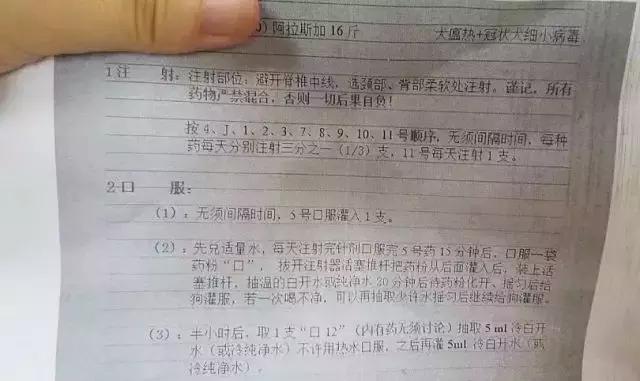 ) 阿拉斯加 16 斤 犬瘟热+冠状犬细小病毒
1 注 射：注射部位：避开脊椎中线，选颈部、背部柔软处注射。谨记，所有
药物严禁混合，否则一切后果自负！
按 4、J、1、2、3、7、8、9、10、11 号顺序，无须间隔时间，每种
药每天分别注射三分之一（1/3）支，11 号每天注射 1 支。
2 口 服：
（1）：无须间隔时间，5 号口服灌入 1 支。
（2）：先兑适量水，每天注射完针剂口服完 5 号药 15 分钟后，口服一袋
药粉“口”， 拔开注射器活塞推杆把药粉从后面灌入后，装上活
塞推杆，抽温的白开水或纯净水 20 分钟后待药粉化开、摇匀后给
狗灌服，若一次喝不净，可以再抽取少许水摇匀后继续给狗灌服。
（3）：半小时后，取 1 支“口 12”（内有药无须讨论）抽取 5 ml 冷白开
水（或冷纯净水）不许用热水口服，之后再灌 5ml 冷白开水（或
冷纯净水）。